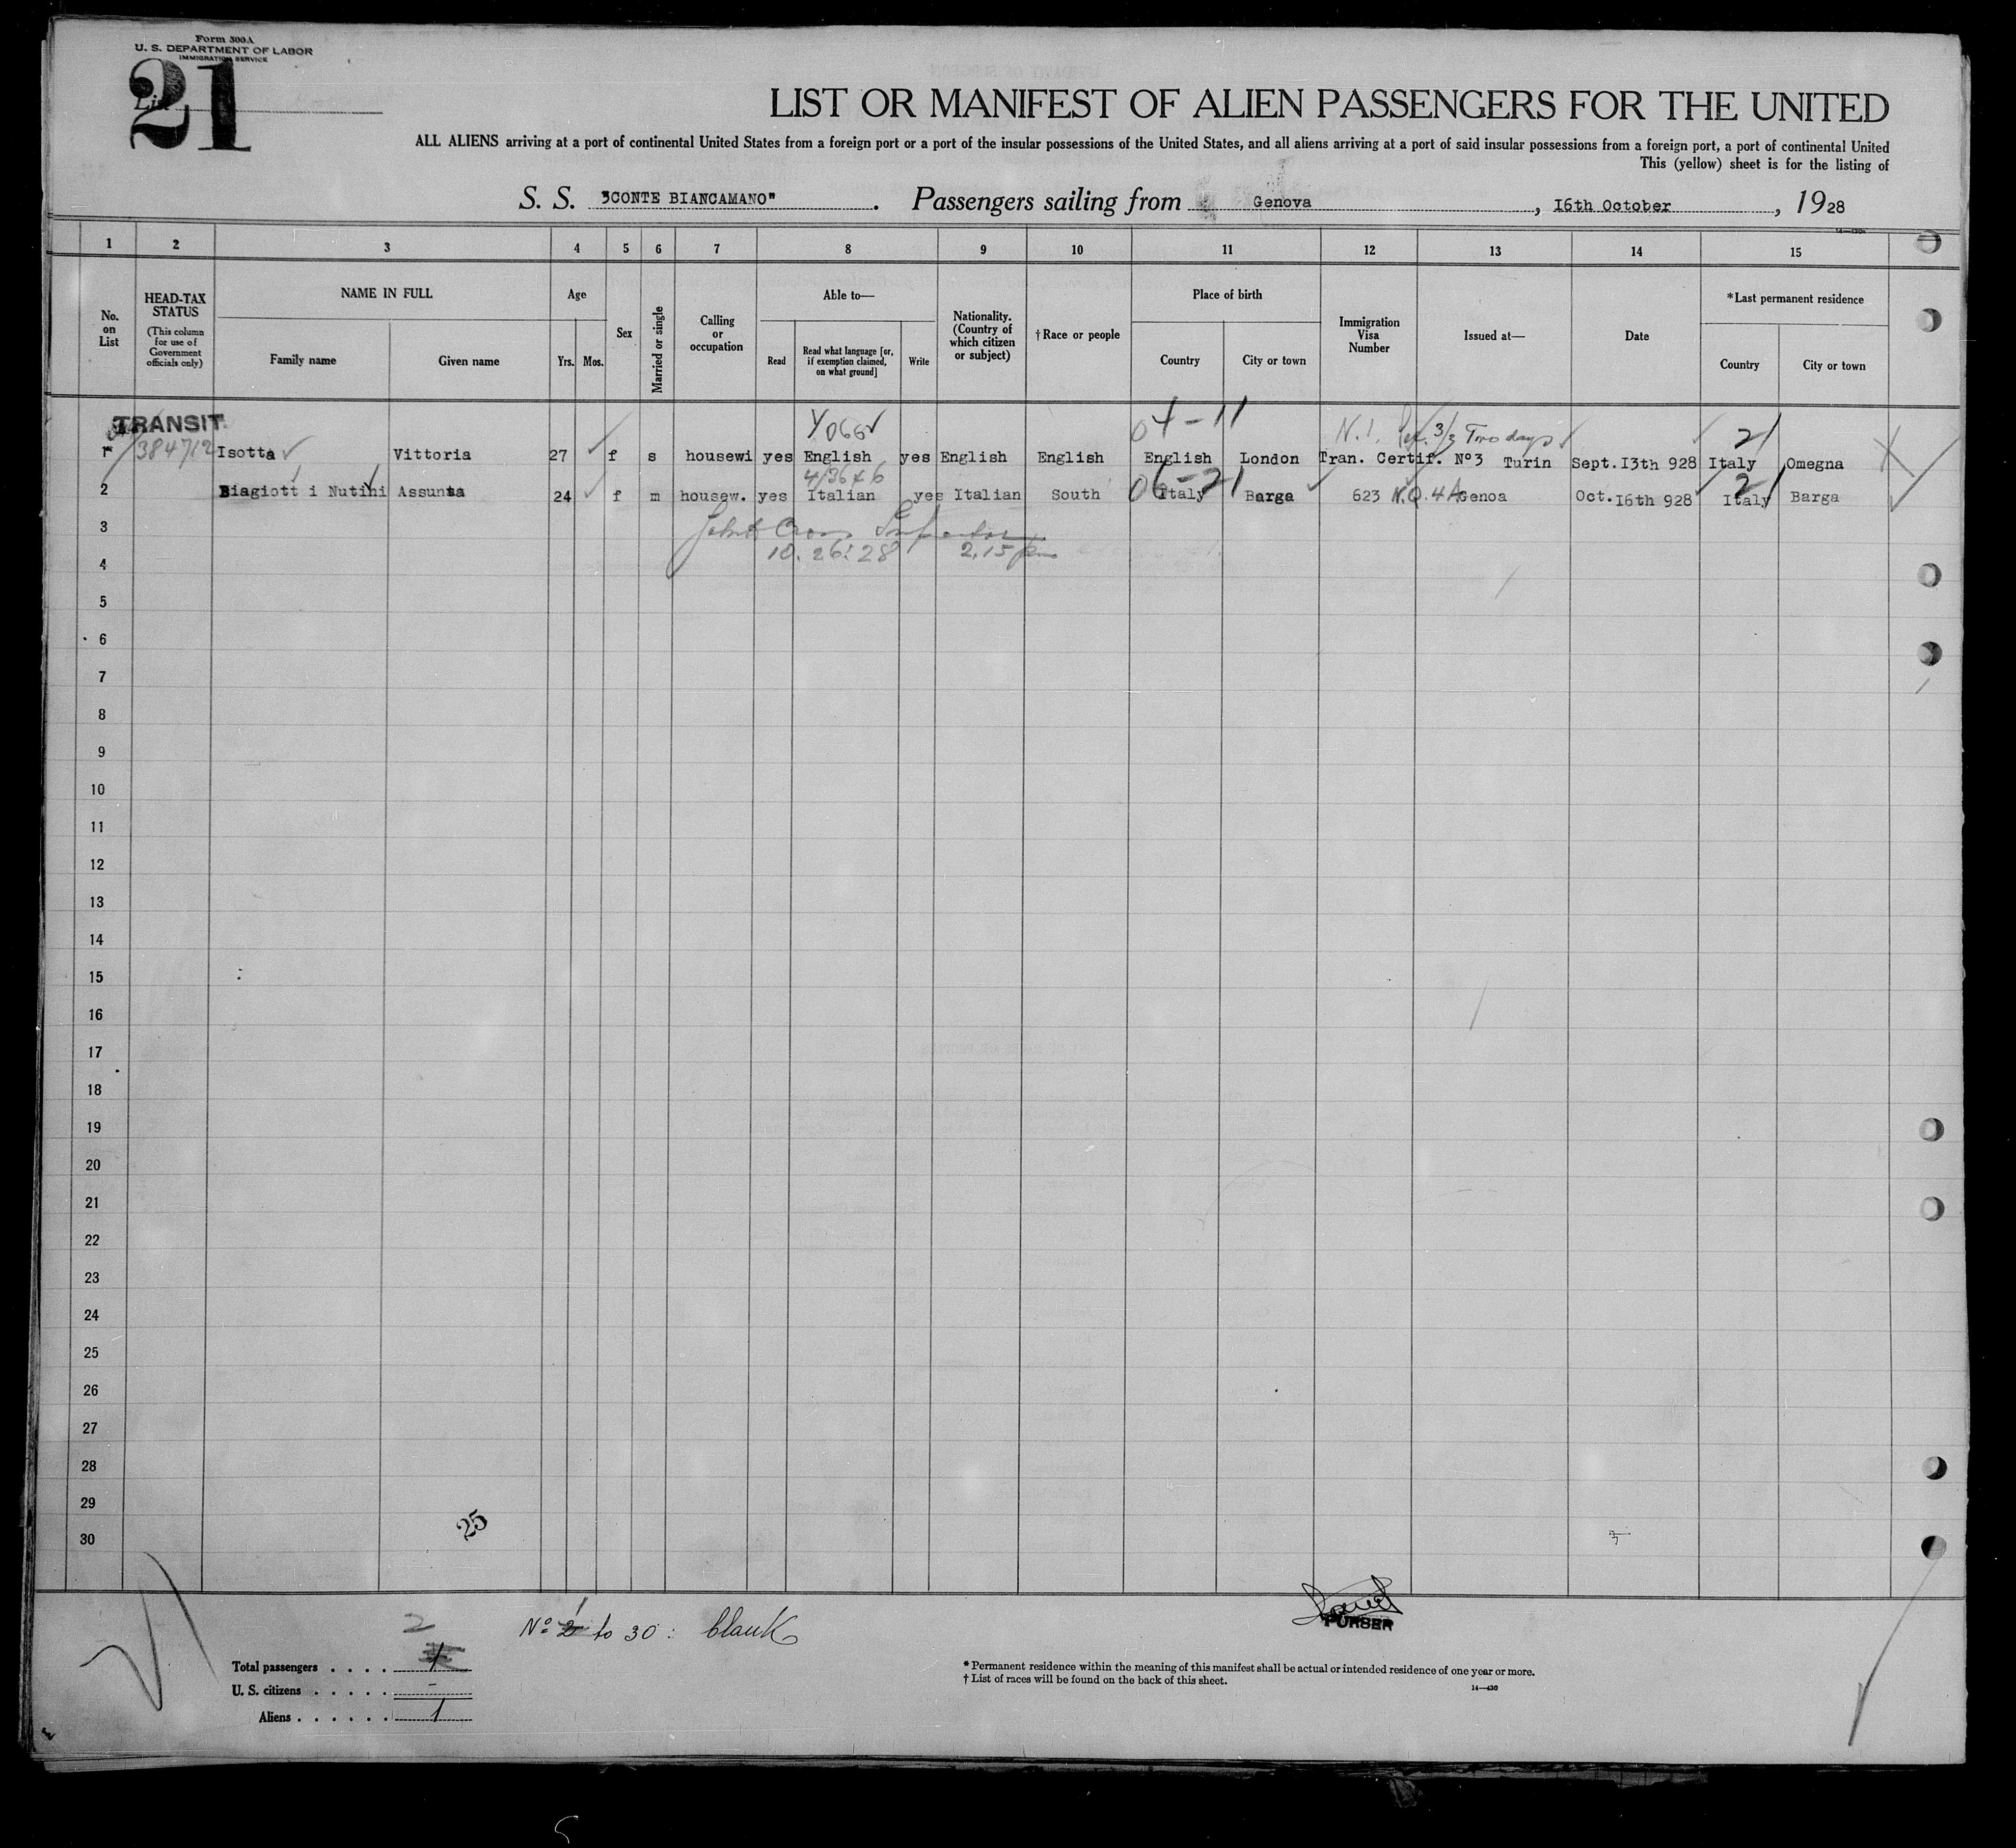 Form 500A
U. S. DEPARTMENT OF LABOR
IMMIGRATION SERVICE
List
21
LIST OR MANIFEST OF ALIEN PASSENGERS FOR THE UNITED
ALL ALIENS arriving at a port of continental United States from a foreign port or a port of the insular possessions of the United States, and all aliens arriving at a port of said insular possessions from a foreign port, a port of continental United
This (yellow) sheet is for the listing of
S. S. "CONTE BIANCAMANO". Passengers sailing from Genova, 16th October, 1928
14—430
1 2 3 4 5 6 7 8 9 10 11 12 13 14 15
No. on List
HEAD-TAX STATUS
(This column for use of Government officials only)
NAME IN FULL
Family name
Given name
Age
Yrs. Mos.
Sex
Married or single
Calling or occupation
Able to—
Read
Read what language [or, if exemption claimed, on what ground]
Write
Nationality. (Country of which citizen or subject)
†Race or people
Place of birth
Country
City or town
Immigration Visa Number
Issued at—
Date
*Last permanent residence
Country
City or town
TRANSIT
04-11
N.I. 3/3 Two days
21
1 384712 Isotta Vittoria 27 f s housewi yes English yes English English English London Tran. Certif. Nº3 Turin Sept.13th 928 Italy Omegna
06-21
21
2 Biagiotti Nutini Assunta 24 f m housew. yes Italian yes Italian South Italy Barga 623 N.Q. 4A Genoa Oct.16th 928 Italy Barga
3
10.26.28 2.15 pm
4
5
6
7
8
9
10
11
12
13
14
15
16
17
18
19
20
21
22
23
24
25
26
27
28
29
30
25
Nº 2 to 30: blank
PURSER
2
Total passengers . . . . 1
U. S. citizens . . . . . -
Aliens . . . . . . 1
* Permanent residence within the meaning of this manifest shall be actual or intended residence of one year or more.
† List of races will be found on the back of this sheet.
14—430